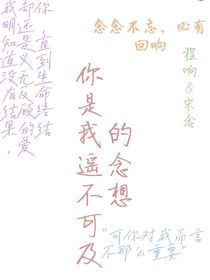 我明知道没有结果，
却还是义无反顾的爱
你，直到生命终结
念念不忘，必有
回响
程响&宋念
你是我遥不可及
的念想
“可你对我而言
不那么重要”